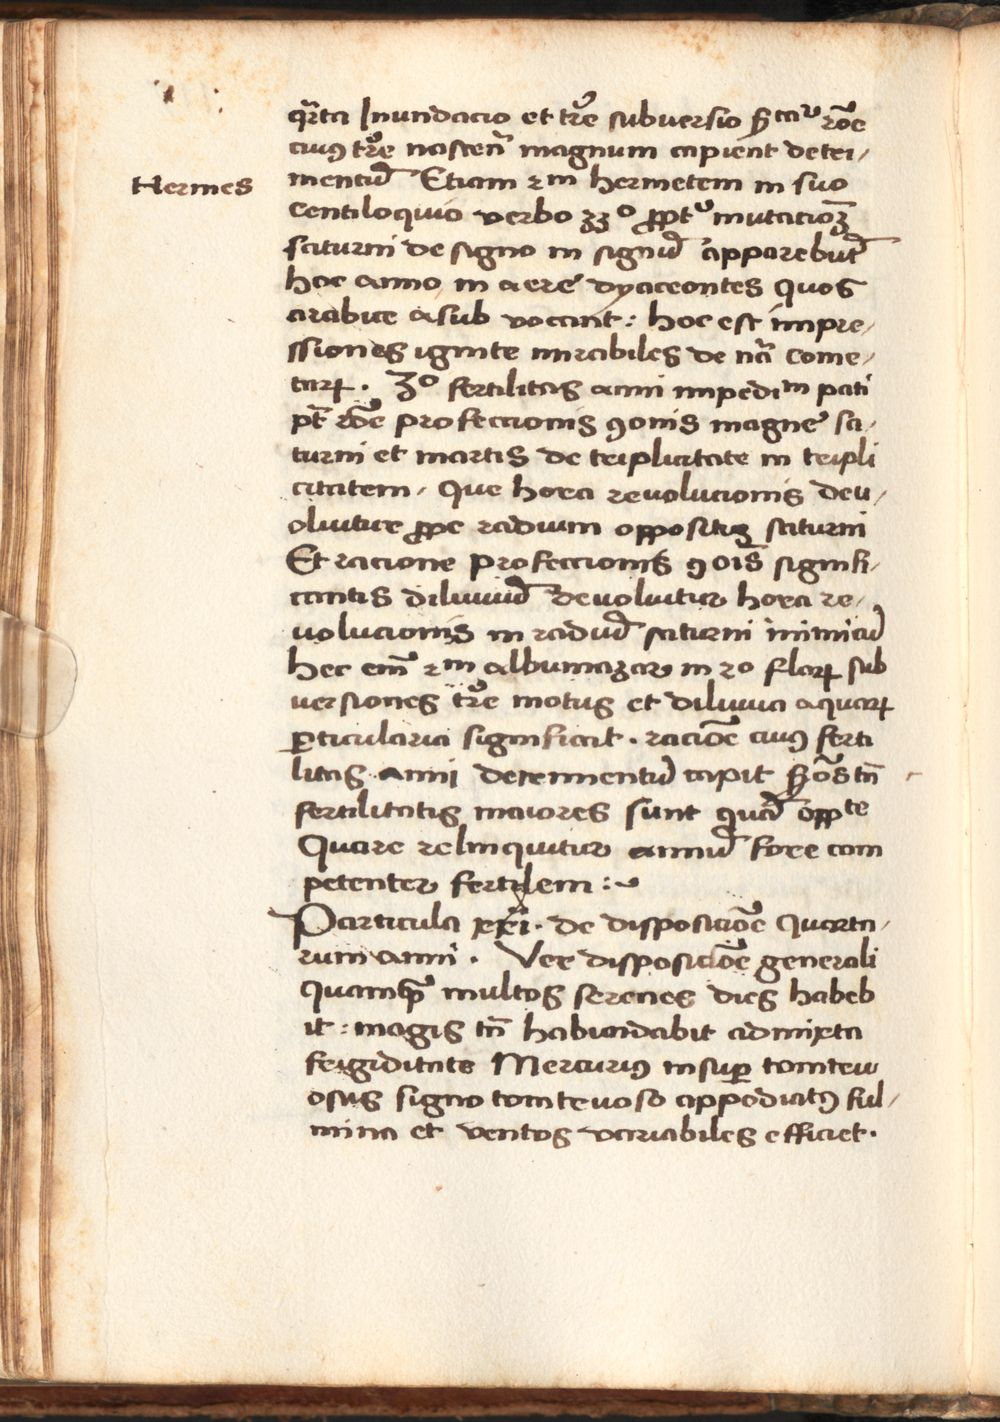 qrta Inundacio et tre subversio sctar roe
cuius tre nascen magnum capient detri/
Hermes
mentu Etiam 2m hermetem in suo
Centiloquio verbo 33o ppt mutacioz
saturni de signo in signu apparebut
hoc anno in aere dyaceontes Quos
arabice asub vocant : hoc est impre/
ssiones ignite mirabiles de na come/
tarum . 3o fertilitas anni impedim pati
pt roe profeccionis 9onis magne sa/
turni et martis de triplicitate in tripli
citatem / Que hora revolucionis dev/
oluitur ppe radium oppositus saturni
Et racione profeccionis 9ois signifi/
cantis diluuiu devoluitur hora re/
volucionis in radiu saturni inimicu
hec em 2m albumazar in 20 florum sub
versiones tre motus et diluvia aquarum
particularia significat . racioe cuius ferti
litas anni detrimentu capit
fertilitatis maiores sunt qua oppte
Quare relinquitur annu fore com
petenter fertilem :~
Particula xxi . de disposicioe Quarta/
rum anni . Ver disposicioe generali
Quamqua multos serenes dies habeb
it : magis tn habundabit admixta
frigiditate Mercurius insuper tonitru
osus signo tonitruoso appodiatus ful/
mina et ventos variabiles efficiet .